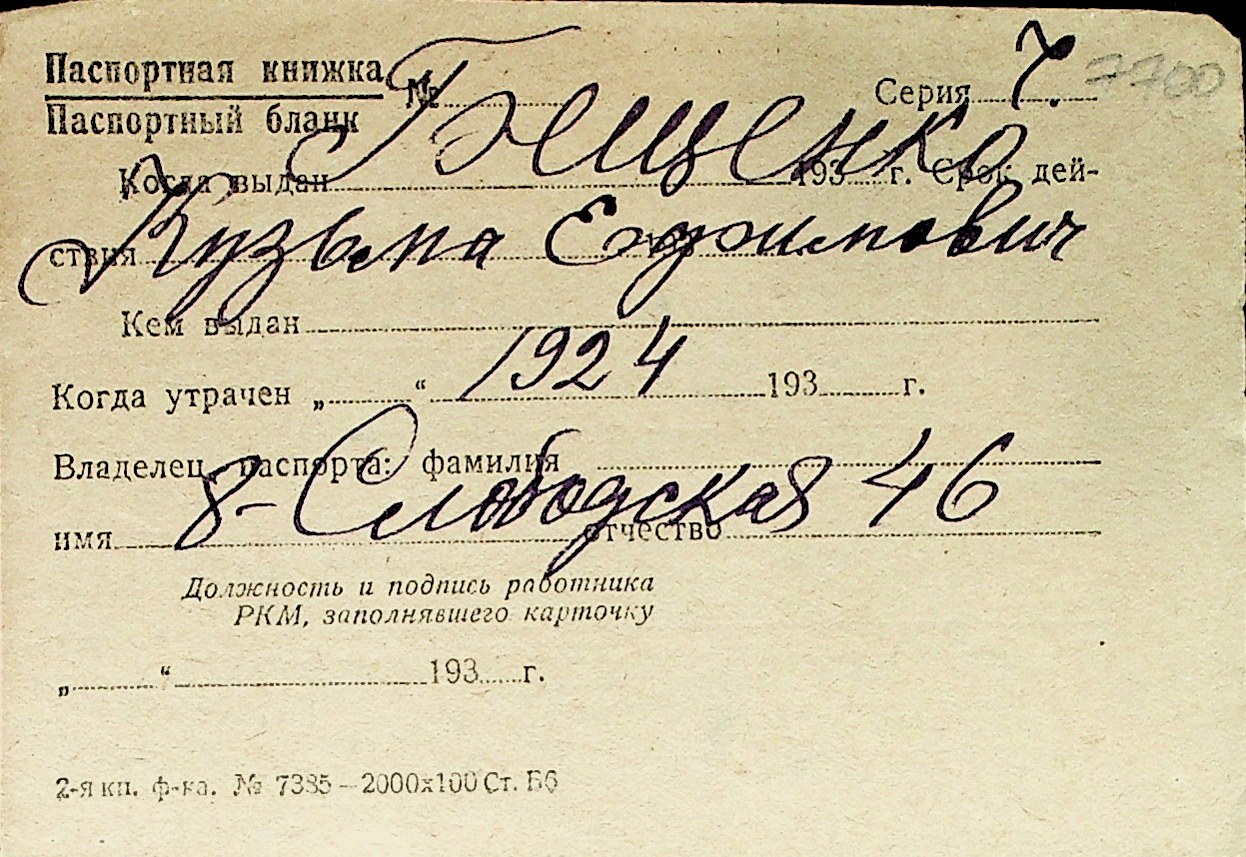 Паспортная книжка
Паспортный бланк
№ Серия 7.
7700
Бещенко
Когда выдан 193 г. Срок дей-
ствия 193
Кузьма Ефимович
Кем выдан
1924
Когда утрачен „ “ 193 г.
Владелец паспорта: фамилия
8-Слободская 46
имя отчество
Должность и подпись работника
РКМ, заполнявшего карточку
„ “ 193 г.
2-я кп. ф-ка. № 7385 – 2000х100 Ст. Б6